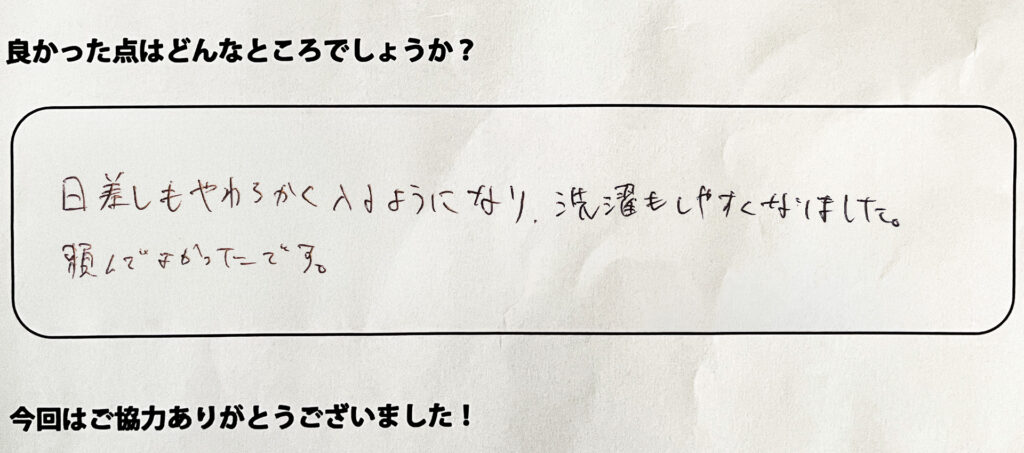 良かった点はどんなところでしょうか？
日差しもやわらかく入るようになり、洗濯もしやすくなりました。
頼んでよかったです。
今回はご協力ありがとうございました！